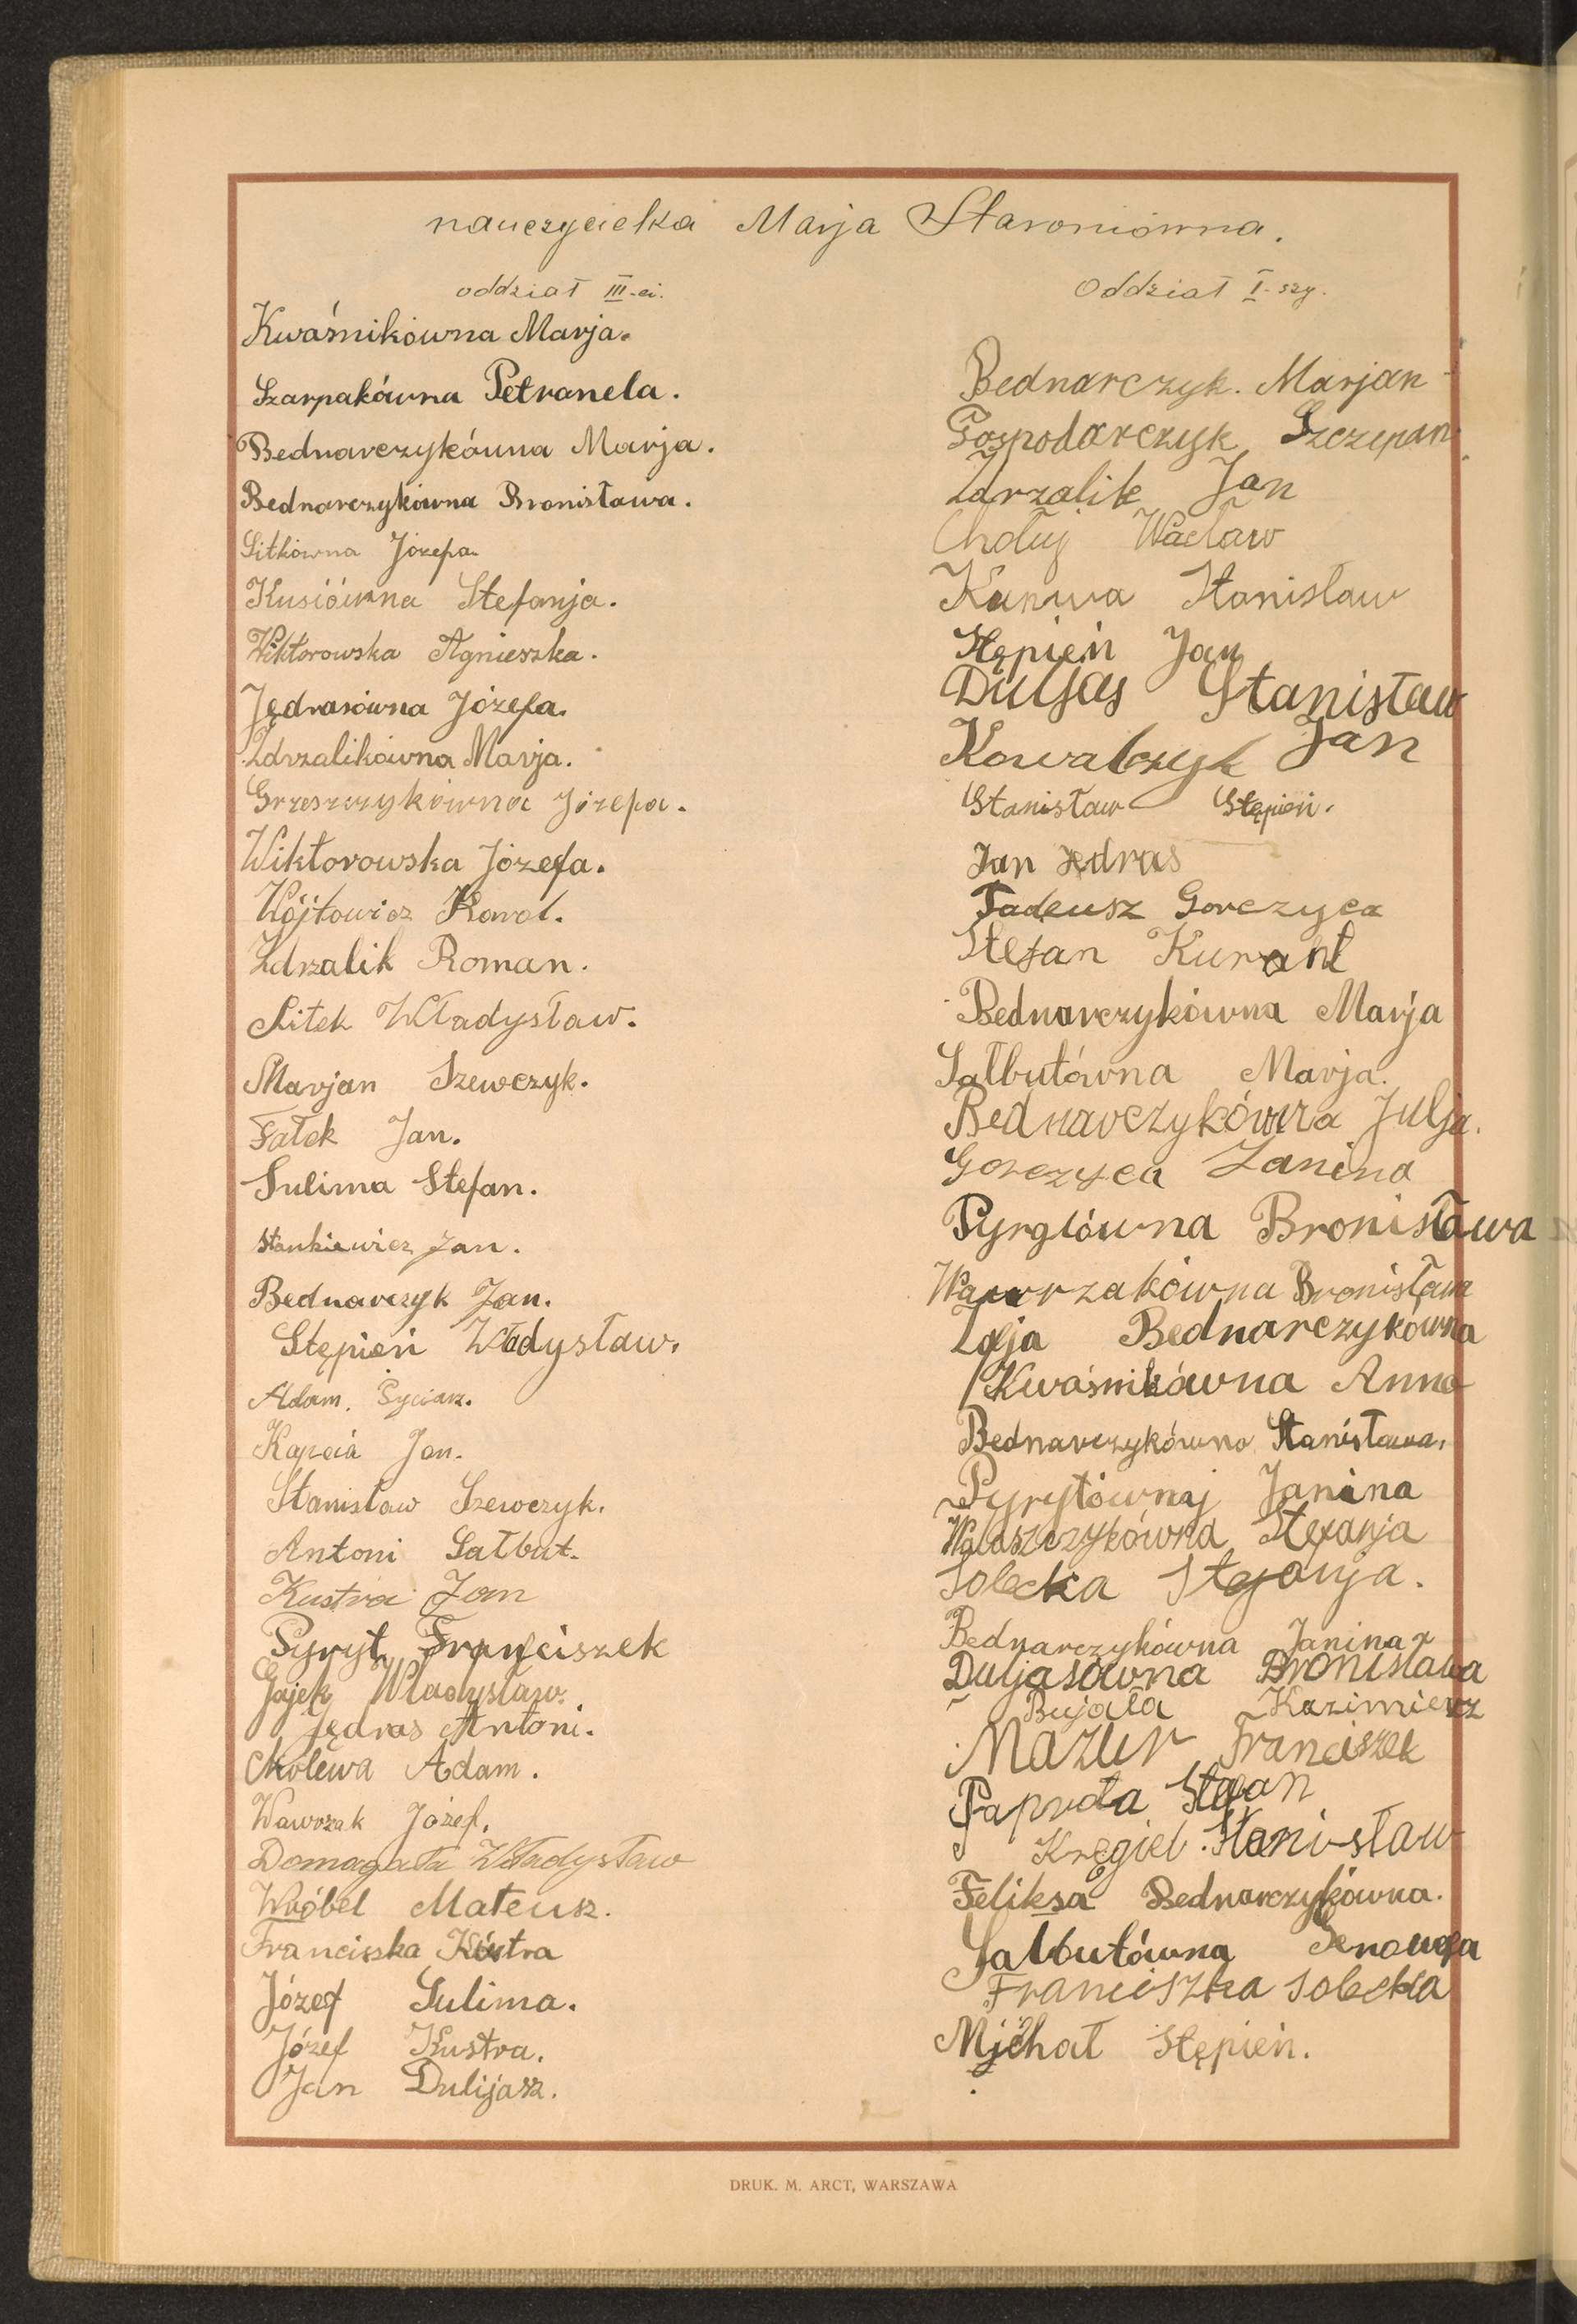 nauczycielka Marja Staroniówna.
oddział III-ci.
Kwaśnikówna Marja.
Szarpakówna Petronela.
Bednarczykówna Marja.
Bednarczykówna Bronisława.
Sitkówna Józefa.
Kusiówna Stefanja.
Wiktorowska Agnieszka.
Jędrasówna Józefa.
Zdrzalikówna Marja.
Grzeszczykówna Józefa.
Wiktorowska Józefa.
Wójtowicz Karol.
Zdrzalik Roman.
Sitek Władysław.
Marjan Szewczyk.
Fałek Jan.
Sulima Stefan.
Stankiewicz Jan.
Bednarczyk Jan.
Stępień Władysław.
Adam
Kapcia Jan.
Stanisław Szewczyk.
Antoni Sałbut.
Kustra Jan
Pyryt Franciszek
Gajek Władysław.
Jędras Antoni.
Molewa Adam.
Wawrzak Józef.
Domagała Władysław
Wróbel Mateusz.
Franciszka Kustra
Józef Sulima.
Józef Kustra.
Jan Dulijasz.
Oddział I-szy.
Bednarczyk. Marjan
Gospodarczyk Szczepan
Zdrzalik Jan
Chołuj Wacław
Kaniwa Stanisław
Stępień Jan
Duljas Stanisław
Kowalczyk Jan
Stanisław Stępień.
Jan Jędras
Tadeusz Gorczyca
Stefan Kurant
Bednarczykówna Marja
Sałbutówna Marja.
Bednarczykówna Julja.
Gorczyca Janina
Pyrglówna Bronisława
Wawrzakówna Bronisława
Zofja Bednarczykówna
Kwaśnikówna Anna
Bednarczykówna Stanisława.
Pyrytównaj Janina
Walaszczykówna Stefanja
Solecka Stefanja.
Bednarczykówna Janina
Duljasówna Bronisława
Bujała Kazimierz
Mazur Franciszek
Paprota Stefan
Kręgiel Stanisław
Feliksa Bednarczykówna.
Sałbutówna Genowefa
Franciszka Solecka
Michał Stępień.
DRUK. M. ARCT, WARSZAWA